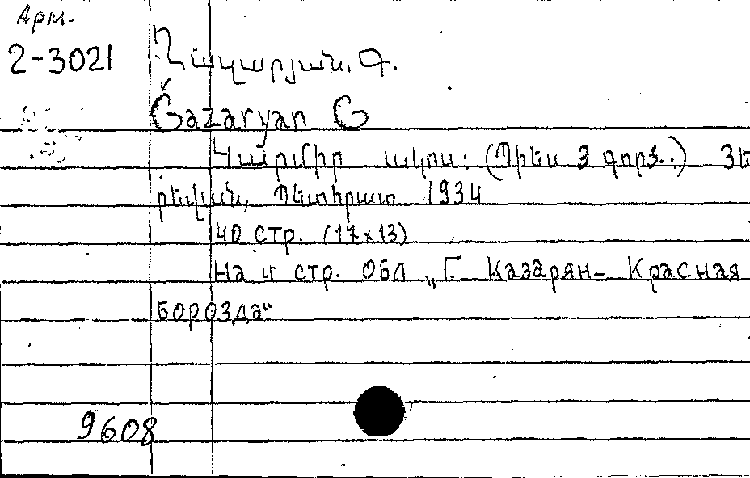 Арм.
2-3021
Ղազարյան, Գ.
Ġazaryan G
Կարմիր ակոս: (Պիես 3 գործ.) Յե
րեվան, Պետհրատ 1934
40 стр. (17x13)
На 4 стр. Обл „Г. Казарян- Красная
борозда“
9608